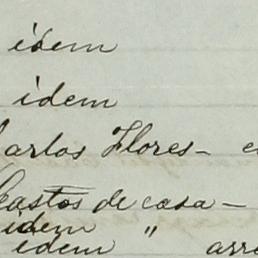 idem
idem
Carlos Flores -
Gastos de casa -
idem
idem " arre